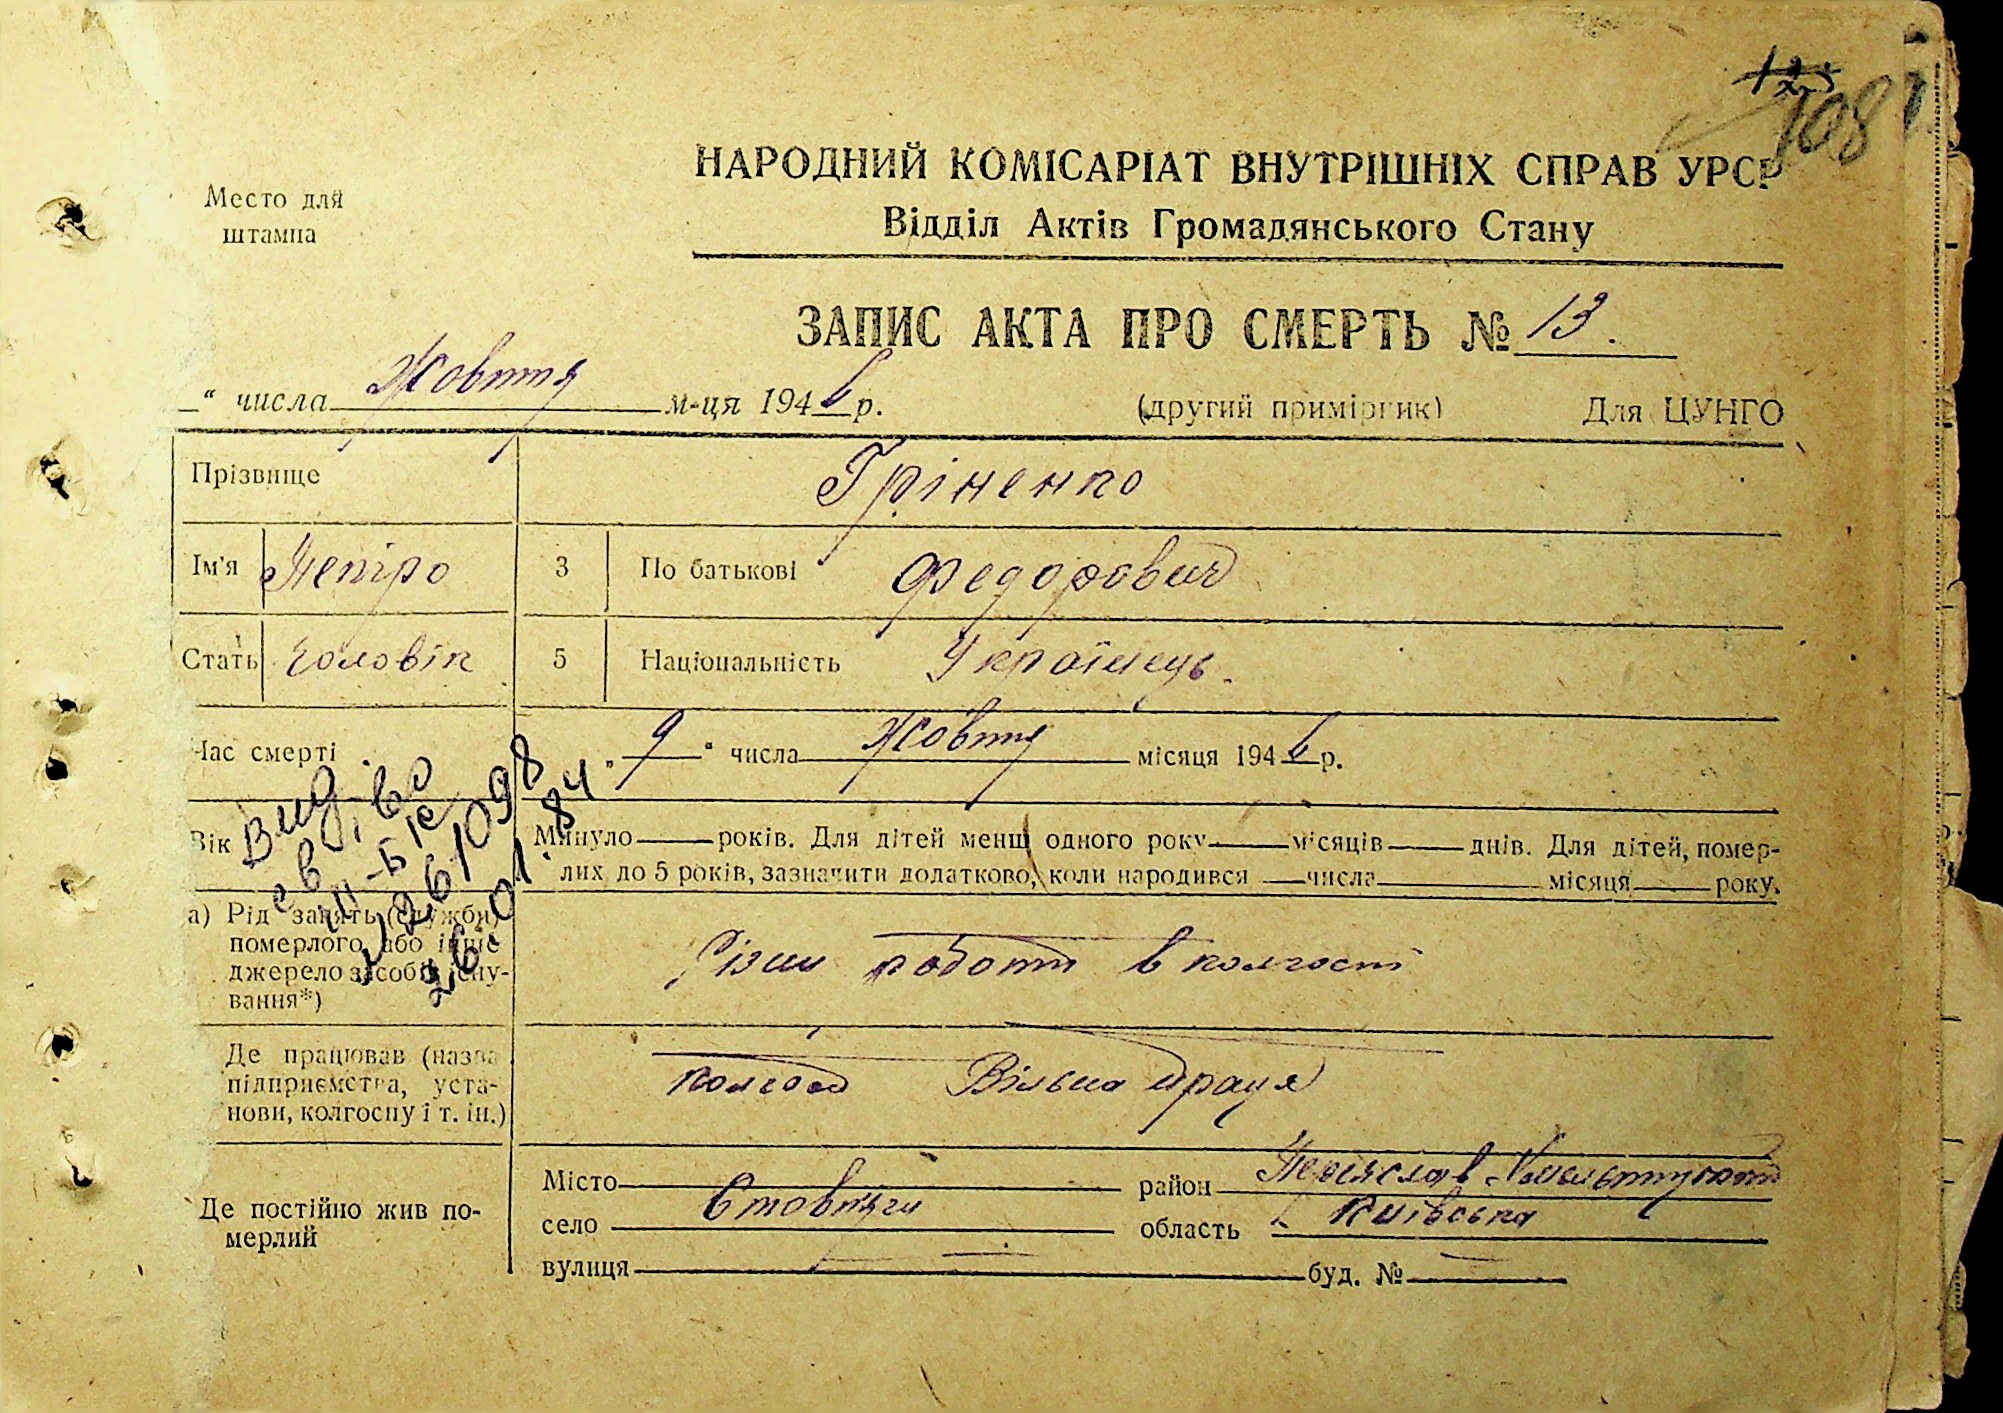 108
НАРОДНИЙ КОМІСАРІАТ ВНУТРІШНІХ СПРАВ УРСР
Место для
штампа
Відділ Актів Громадянського Стану
ЗАПИС АКТА ПРО СМЕРТЬ № 13.
“ числа Жовтня м-ця 1946 р. (другий примірник) Для ЦУНГО
Прізвище Гріненко
Ім'я Петро 3 По батькові Федорович
Стать Чоловік 5 Національність Українець.
Час смерті „ 9 “ числа Жовтня місяця 1946 р.
Видано
св.
III-БК
№261098
26.01.84
Вік Минуло років. Для дітей менш одного року місяців днів. Для дітей, помер-
лих до 5 років, зазначити додатково, коли народився числа місяця року.
а) Рід занять (служби)
померлого або інше
джерело засобів існу-
вання*)
Різни роботи в колгоспі
Де працював (назва
підприємства, уста-
нови, колгоспу і т. ін.)
колгосп Вільна праця
Де постійно жив по-
мерлий
Місто район Переяслав-Хмельницький
село Стовпяги область Київська
вулиця буд. №